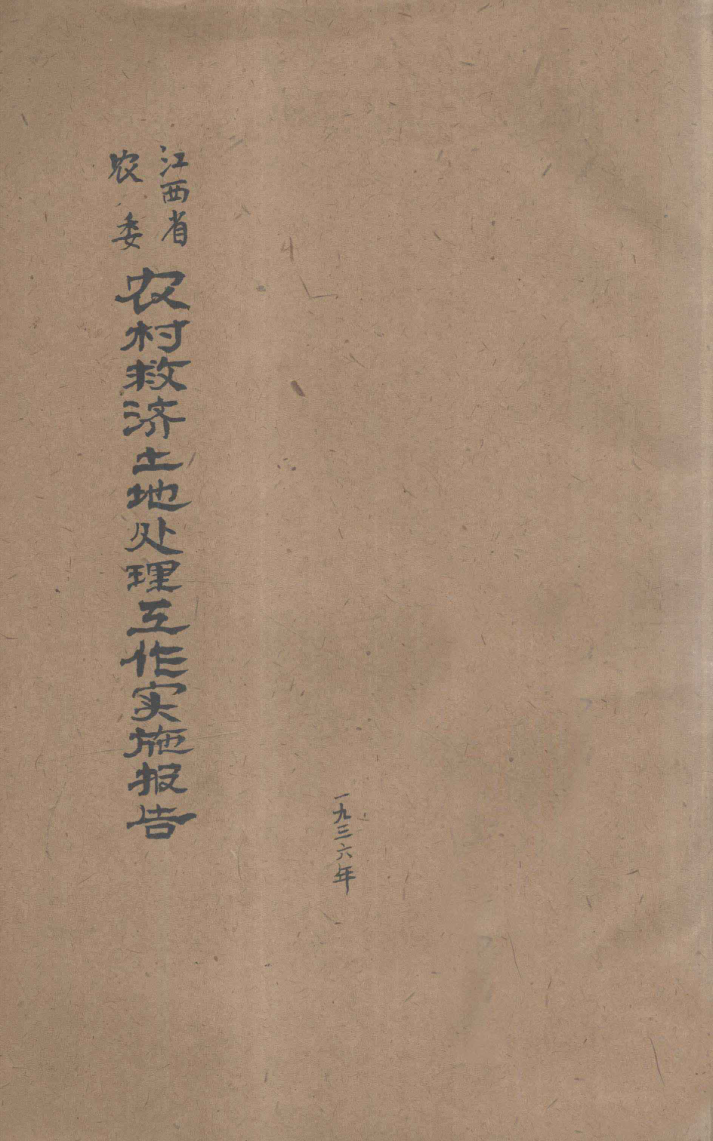 江西省
农委
农村救济土地处理工作实施报告
一九三六年